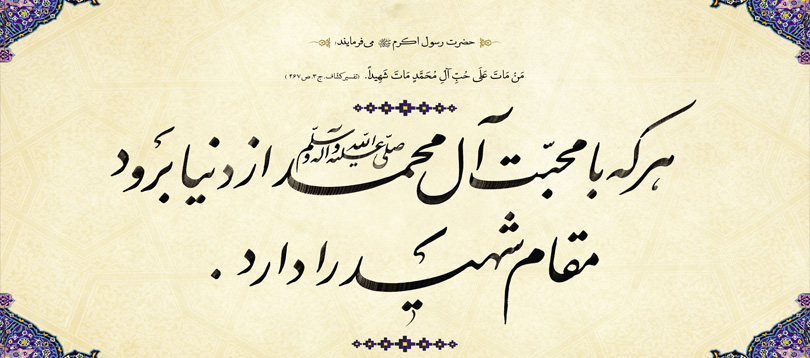 حضرت رسول اکرم ﷺ می‌فرمایند:
مَنْ مَاتَ عَلَی حُبِّ آلِ مُحَمَّدٍ مَاتَ شَهِیداً. (تفسیر کشاف، ج۳، ص۴۶۷)
هرکه با محبّت آل محمد صلّی الله علیه و آله و سلّم از دنیا برود
مقام شهید را دارد .